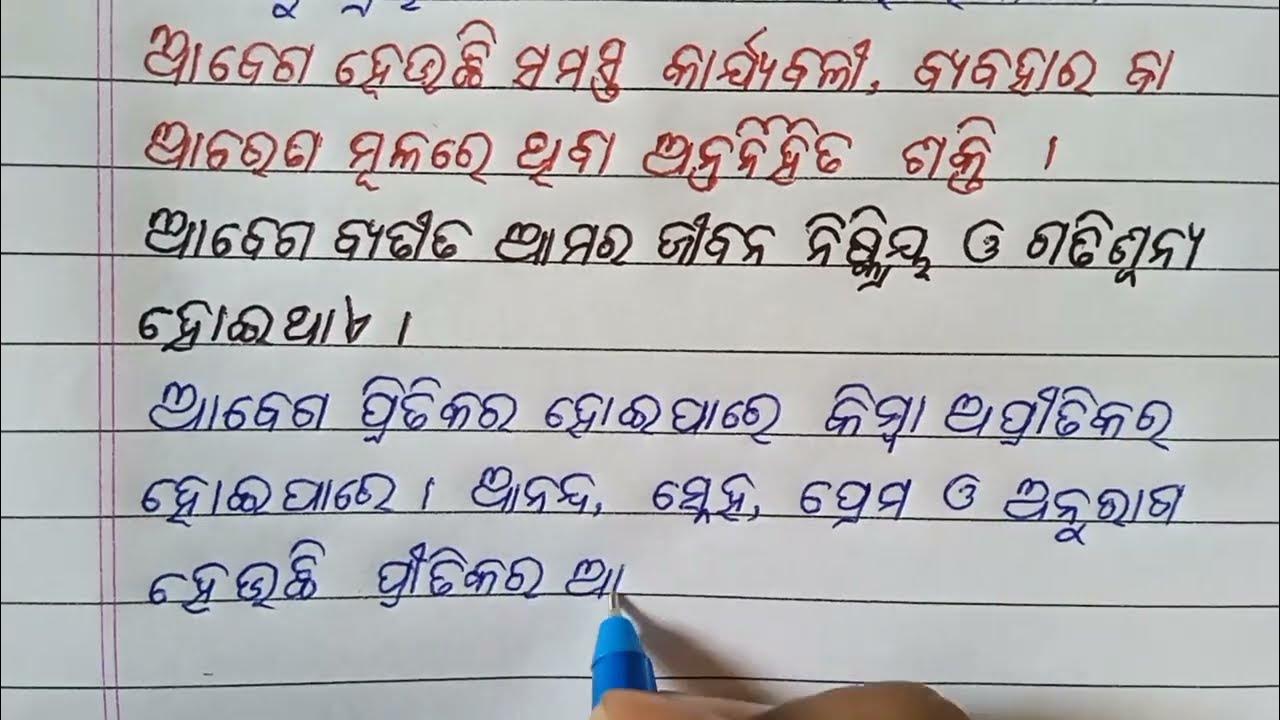 ଆବେଗ ହେଉଛି ସମସ୍ତ କାର୍ଯ୍ୟବଳୀ, ବ୍ୟବହାର ବା
ଆଚରେଗ ମୂଳରେ ଥିବା ଅନ୍ତର୍ନିହିତ ଶକ୍ତି ।
ଆବେଗ ବ୍ୟତୀତ ଆମର ଜୀବନ ନିଷ୍କ୍ରିୟ ଓ ଗତିଶୂନ୍ୟ
ହୋଇଥାଏ ।
ଆବେଗ ପ୍ରିତିକର ହୋଇପାରେ କିମ୍ବା ଅପ୍ରୀତିକର
ହୋଇପାରେ । ଆନନ୍ଦ, ସ୍ନେହ, ପ୍ରେମ ଓ ଅନୁରାଗ
ହେଉଛି ପ୍ରୀତିକର ଆ